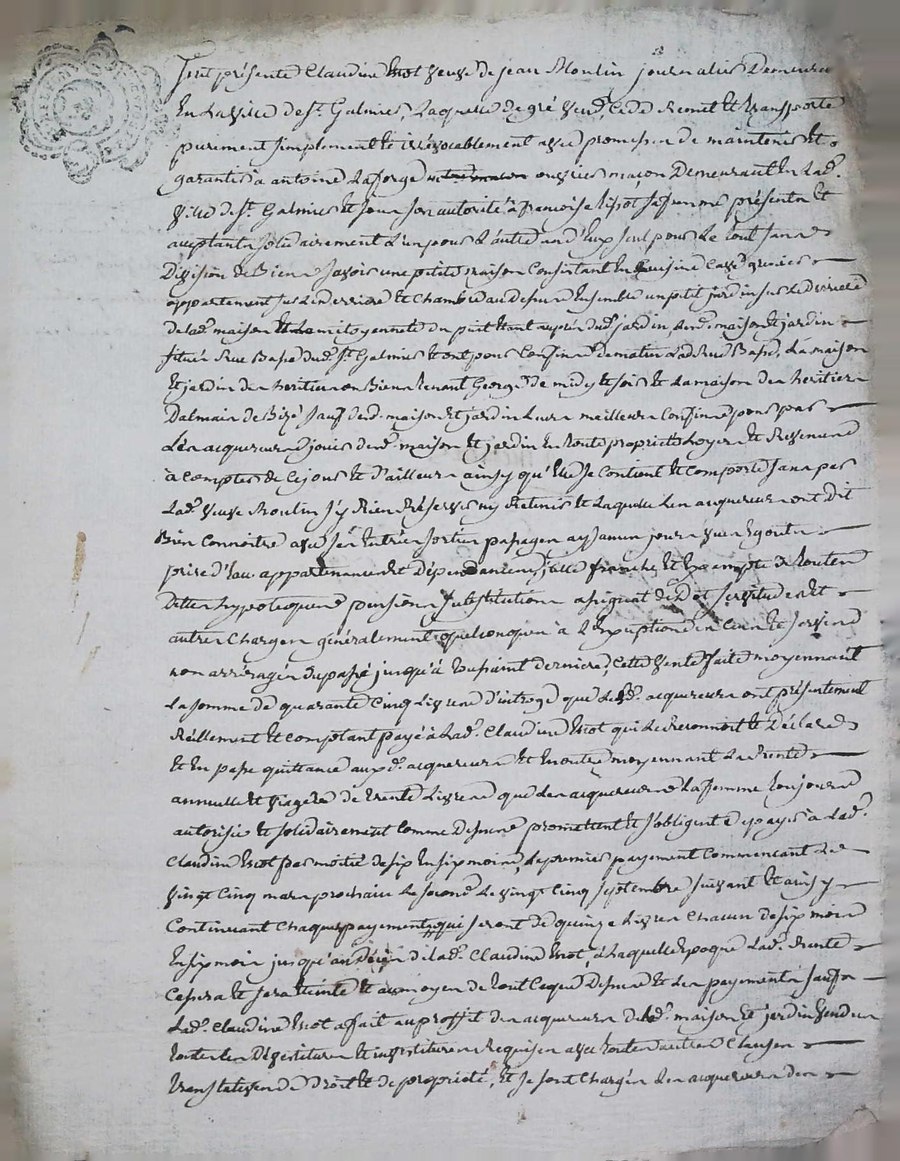 fut présente Claudine Viot veuve de jean Moulin journalier Demeurant
En La ville de st. Galmier, Laquelle de gré vend, Cede Remet Et transporte
purement simplement Et irrévocablement avec promesse de maintenir Et
garantir à antoine Laforge ouvrier maçon Demeurant En Lad.
ville de st. Galmier Et sous son autorité à francoise sa femme présents Et
acceptants solidairement L'un pour L'autre un d'Eux seul pour Le tout sans
Division de Biens Savoir une petite maison Consistant En Cuisine Cave grenier
appartement sur Le derriere Et chambre au dessus Ensemble un petit jardin sur Le derriere
de lad. maison Et La mitoyenneté du puit Etant auprès dud. jardin Lesd. maison Et jardin
situés Rue Basse dud. st. Galmier Et ont pour Confins de matin Lad. Rue Basse, La maison
Et jardin des heritiers ou Bien tenant George de midy Et soir Et La maison des heritiers
Dalmais de Bize sauf desd. maison Et jardin Leurs meilleurs Confins pour par
Les acquereurs jouir desd. maison Et jardin En toute propriété Loyers Et Revenus
à Compter de Ce jour Et d'ailleurs ainsy qu'Elle se Contient Et Comporte sans par
Lad. veuve Moulin s'y Rien Réserver ny Retenir Et Laquelle Les acquereurs ont dit
Bien Connoitre avec ses Entrées sorties passages aysances jours vues Egouts
prise d'Eau appartenances Et Dépendances, jcelle franche Et Exempte de toutes
Dettes hypotecques pensions substitutions assignat de Dot servitudes Et
autres Charges généralement quelconques à L'Exception des Cens Et servis
non arréragés du passé jusqu'à toussaint derniere, Cette vente faite moyennant
La somme de quarante Cinq Livres d'introge que Lesd. acquereurs ont présentement
Réellement Et comptant payé à Lad. Claudine Viot qui Le Reconnoit Et Déclare
Et En passe quittance auxd. acquereurs Et En outre moyennant La Rente
annuelle Et viagere de trente Livres que Les acquereurs La femme toujours
autorisée Et solidairement Comme Dessus promettent Et s'obligent de payer à Lad.
Claudine Viot par moitié de six En six mois, Le premier payement Commencant Le
vingt Cinq mars prochain Le second Le vingt Cinq septembre suivant Et ainsy
Continuant Chaque payement qui seront de quinze Livres Chacun de six mois
En six mois jusqu'au Décés de lad. Claudine Viot, à Laquelle Epoque Lad. Rente
Cessera Et sera Eteinte Et au moyen de tout Ceque Dessus Et des payements sauf
Lad. Claudine Viot a fait au proffit des acquereurs desd. maison Et jardin vendus
toutes Les Devestitures Et investitures Requises avec toutes autres Clauses
translatives de Droit Et de propriété, Et se sont Chargés Les acquereurs des